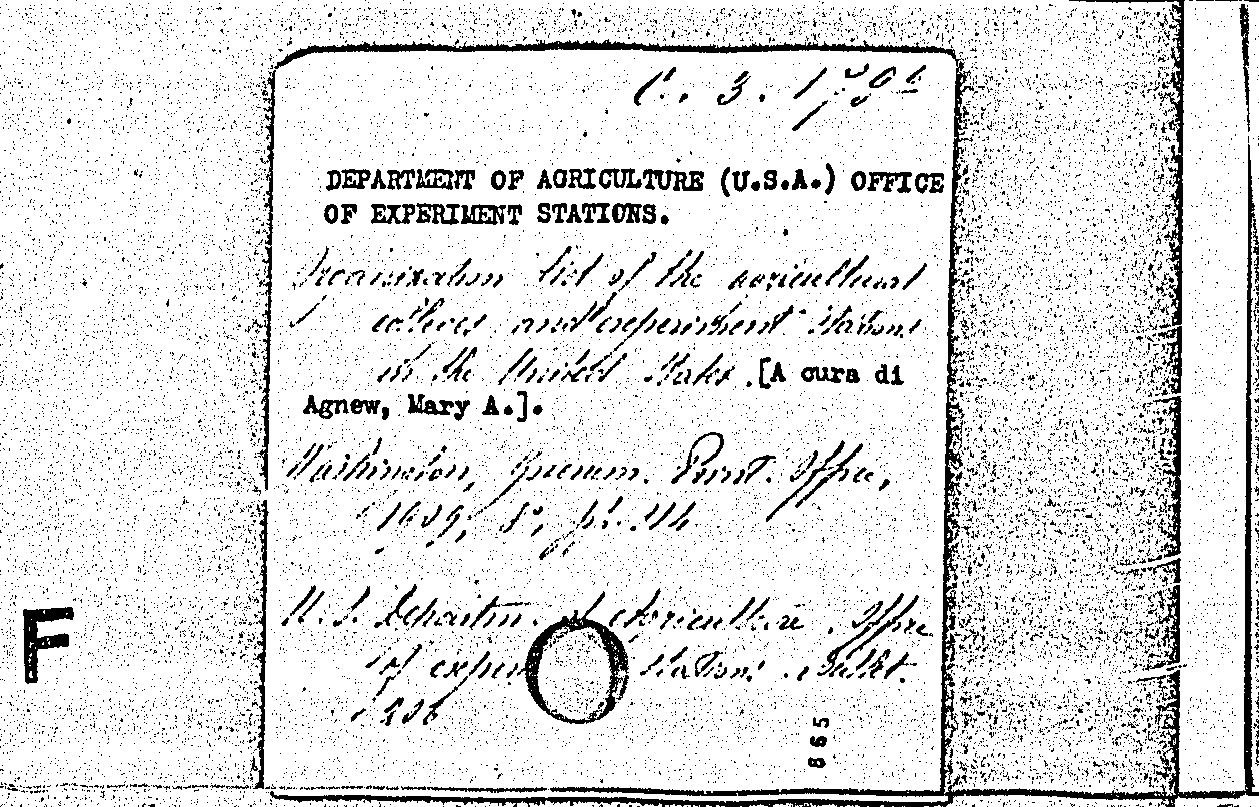 DEPARTMENT OF AGRICULTURE (U.S.A.) OFFICE
OF EXPERIMENT STATIONS.
Organization list of the agricultural
colleges and experiment Stations
in the United States. [A cura di
Agnew, Mary A.].
Washington, Print. Office,
8°,
U. S. Departm. of Agriculture. Office
of Stations. Bullet.
F
865